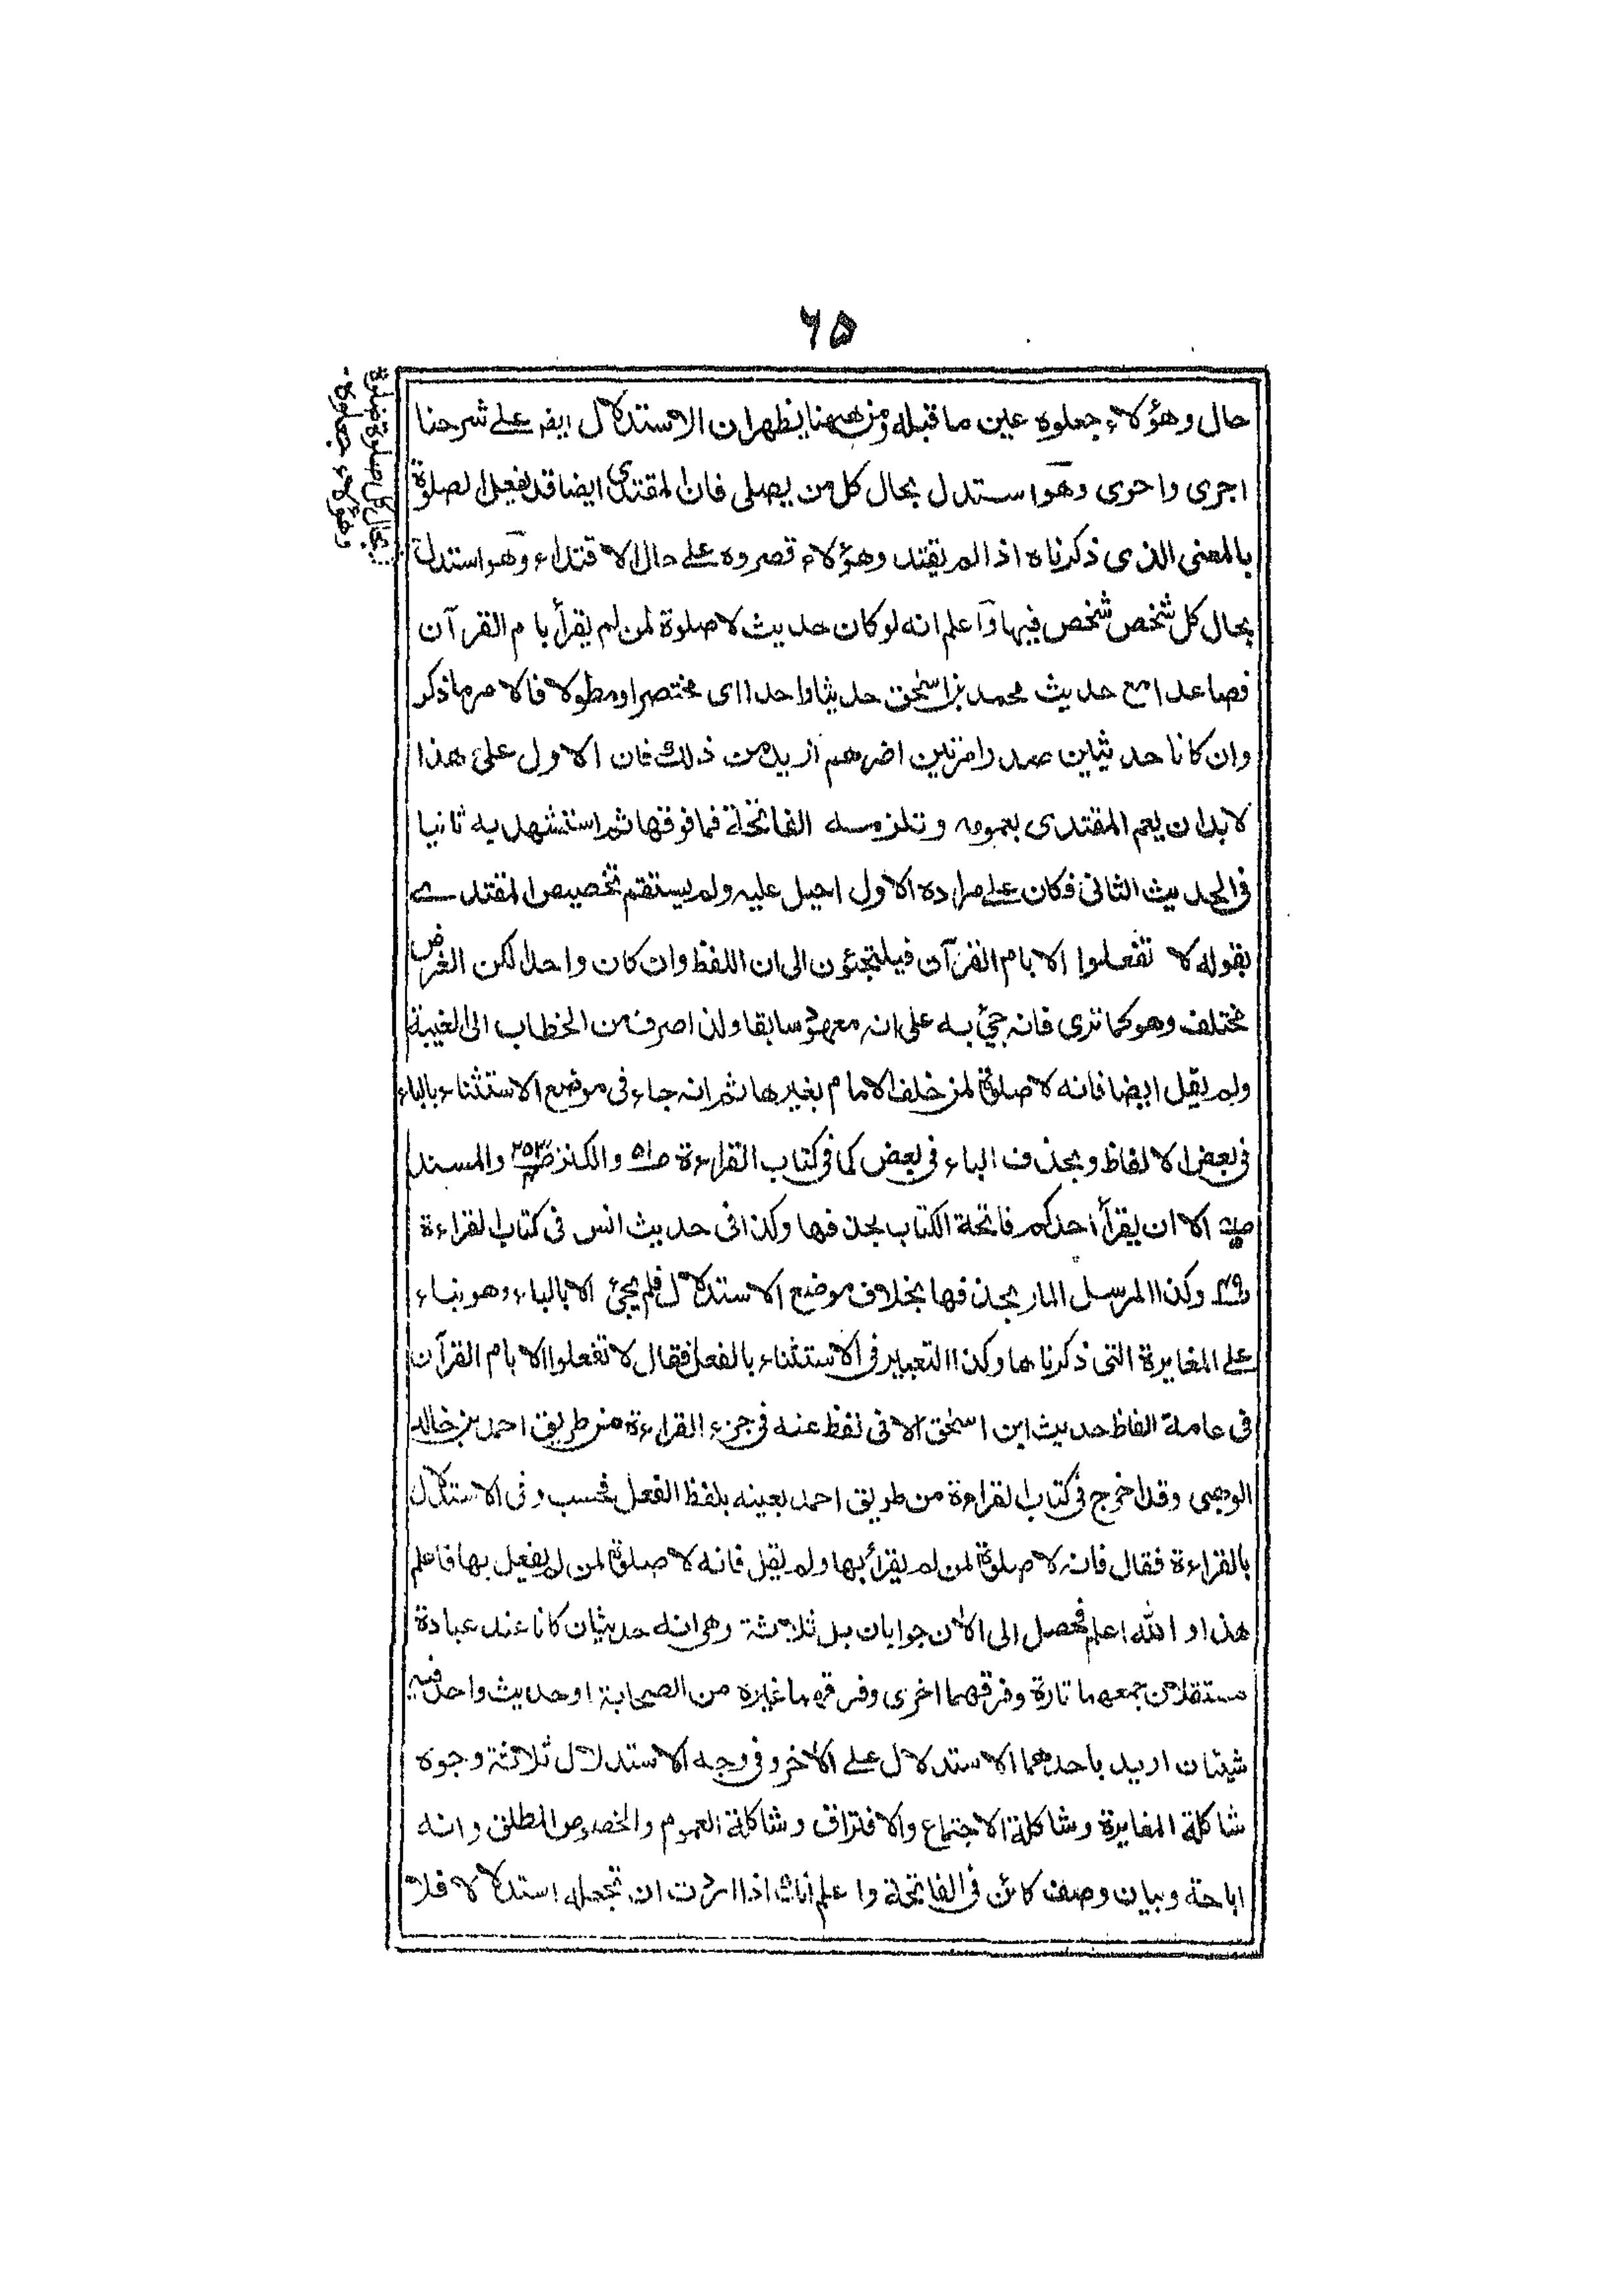 ٦٥
حال وهؤلاء جعلوه عين ما قبله ومن ههنا يظهر ان الاستدلال ايضا على شرحنا
اجرى واحرى وهو استدل بحال كل من يصلى فان المقتدى ايضا قد يفعل الصلوة
بالمعنى الذى ذكرناه اذا لم يقتد وهؤلاء قصروه على حال الاقتداء وهو استدل
بحال كل شخص شخص فيها واعلم انه لو كان حديث لا صلوة لمن لم يقرأ بام القرآن
فصاعدا مع حديث محمد بن اسحٰق حديثا واحدا اى مختصرا ومطولا فالامر ما ذكر
وان كانا حديثين صدرا مرتين اضرهم ازيد من ذلك فان الاول على هذا
لابد ان يعم المقتدى بعمومه وتلزمه الفاتحة فما فوقها ثم استشهد به ثانيا
فى الحديث الثانى فكان على مراده الاول احيل عليه ولم يستقم تخصيص المقتدى
بقوله لا تفعلوا الا بام القرآن فيلتجئون الى ان اللفظ وان كان واحدا لكن الغرض
مختلف وهو كما ترى فانه جئ به على انه معهود سابقا ولذا صرف من الخطاب الى الغيبة
ولم يقل ايضا فانه لا صلوة لمن خلف الامام بغيرها ثم انه جاء فى موضع الاستثناء بالباء
فى بعض الالفاظ وبحذف الباء فى بعض كما فى كتاب القراءة ص٥١ والكنز والمسند
الا ان يقرأ احدكم فاتحة الكتاب بحذفها وكذا فى حديث انس فى كتاب القراءة
وكذا المرسل المار بحذفها بخلاف موضع الاستدلال فلم يجئ الا بالباء وهو بناء
على المغايرة التى ذكرناها وكذا التعبير فى الاستثناء بالفعل فقال لا تفعلوا الا بام القرآن
فى عامة الفاظ حديث ابن اسحٰق الا فى لفظ عنه فى جزء القراءة من طريق احمد بن خالد
الوهبى وقد اخرج فى كتاب القراءة من طريق احمد بعينه بلفظ الفعل فحسب وفى الاستدلال
بالقراءة فقال فانه لا صلوة لمن لم يقرأ بها ولم يقل فانه لا صلوة لمن لم يفعل بها فاعلم
هذا والله اعلم فحصل الى الآن جوابان بل ثلاثة وهى انه حديثان كانا عند عبادة
مستقلان جمعهما تارة وفرقهما اخرى وفرقهما غيره من الصحابة او حديث واحد فيه
شيئان اريد باحدهما الاستدلال على الآخر وفى وجه الاستدلال ثلاثة وجوه
شاكلة المغايرة وشاكلة الاجتماع والافتراق وشاكلة العموم والخصوص المطلق وانه
اباحة وبيان وصف كائن فى الفاتحة واعلم انك اذا اردت ان تجعله استدلالا فلا
بحال كل صلوة صلوة
وهؤلاء جعلوه